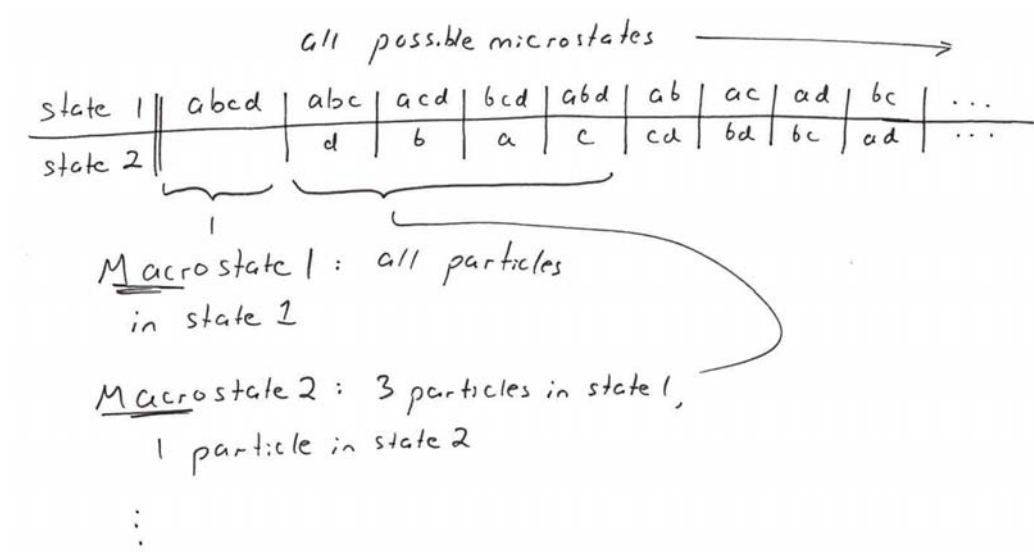 all possible microstates
state 1 || abcd | abc | acd | bcd | abd | ab | ac | ad | bc | ...
state 2 || | d | b | a | c | cd | bd | bc | ad | ...
Macrostate 1 : all particles
in state 1
Macrostate 2 : 3 particles in state 1,
1 particle in state 2
⋮